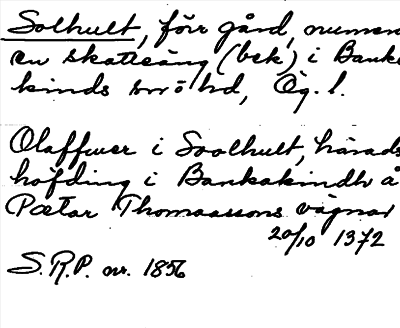 Solhult, förr gård, numen
en skatteäng (bek) i Banke
kinds sn o hd, Ög. l.
Olaffwer i Soolhult, härads
höfding i Bankakindh å
Pætar Thomaassons vägnar
20/10 1372
S.R.P. nr. 1856